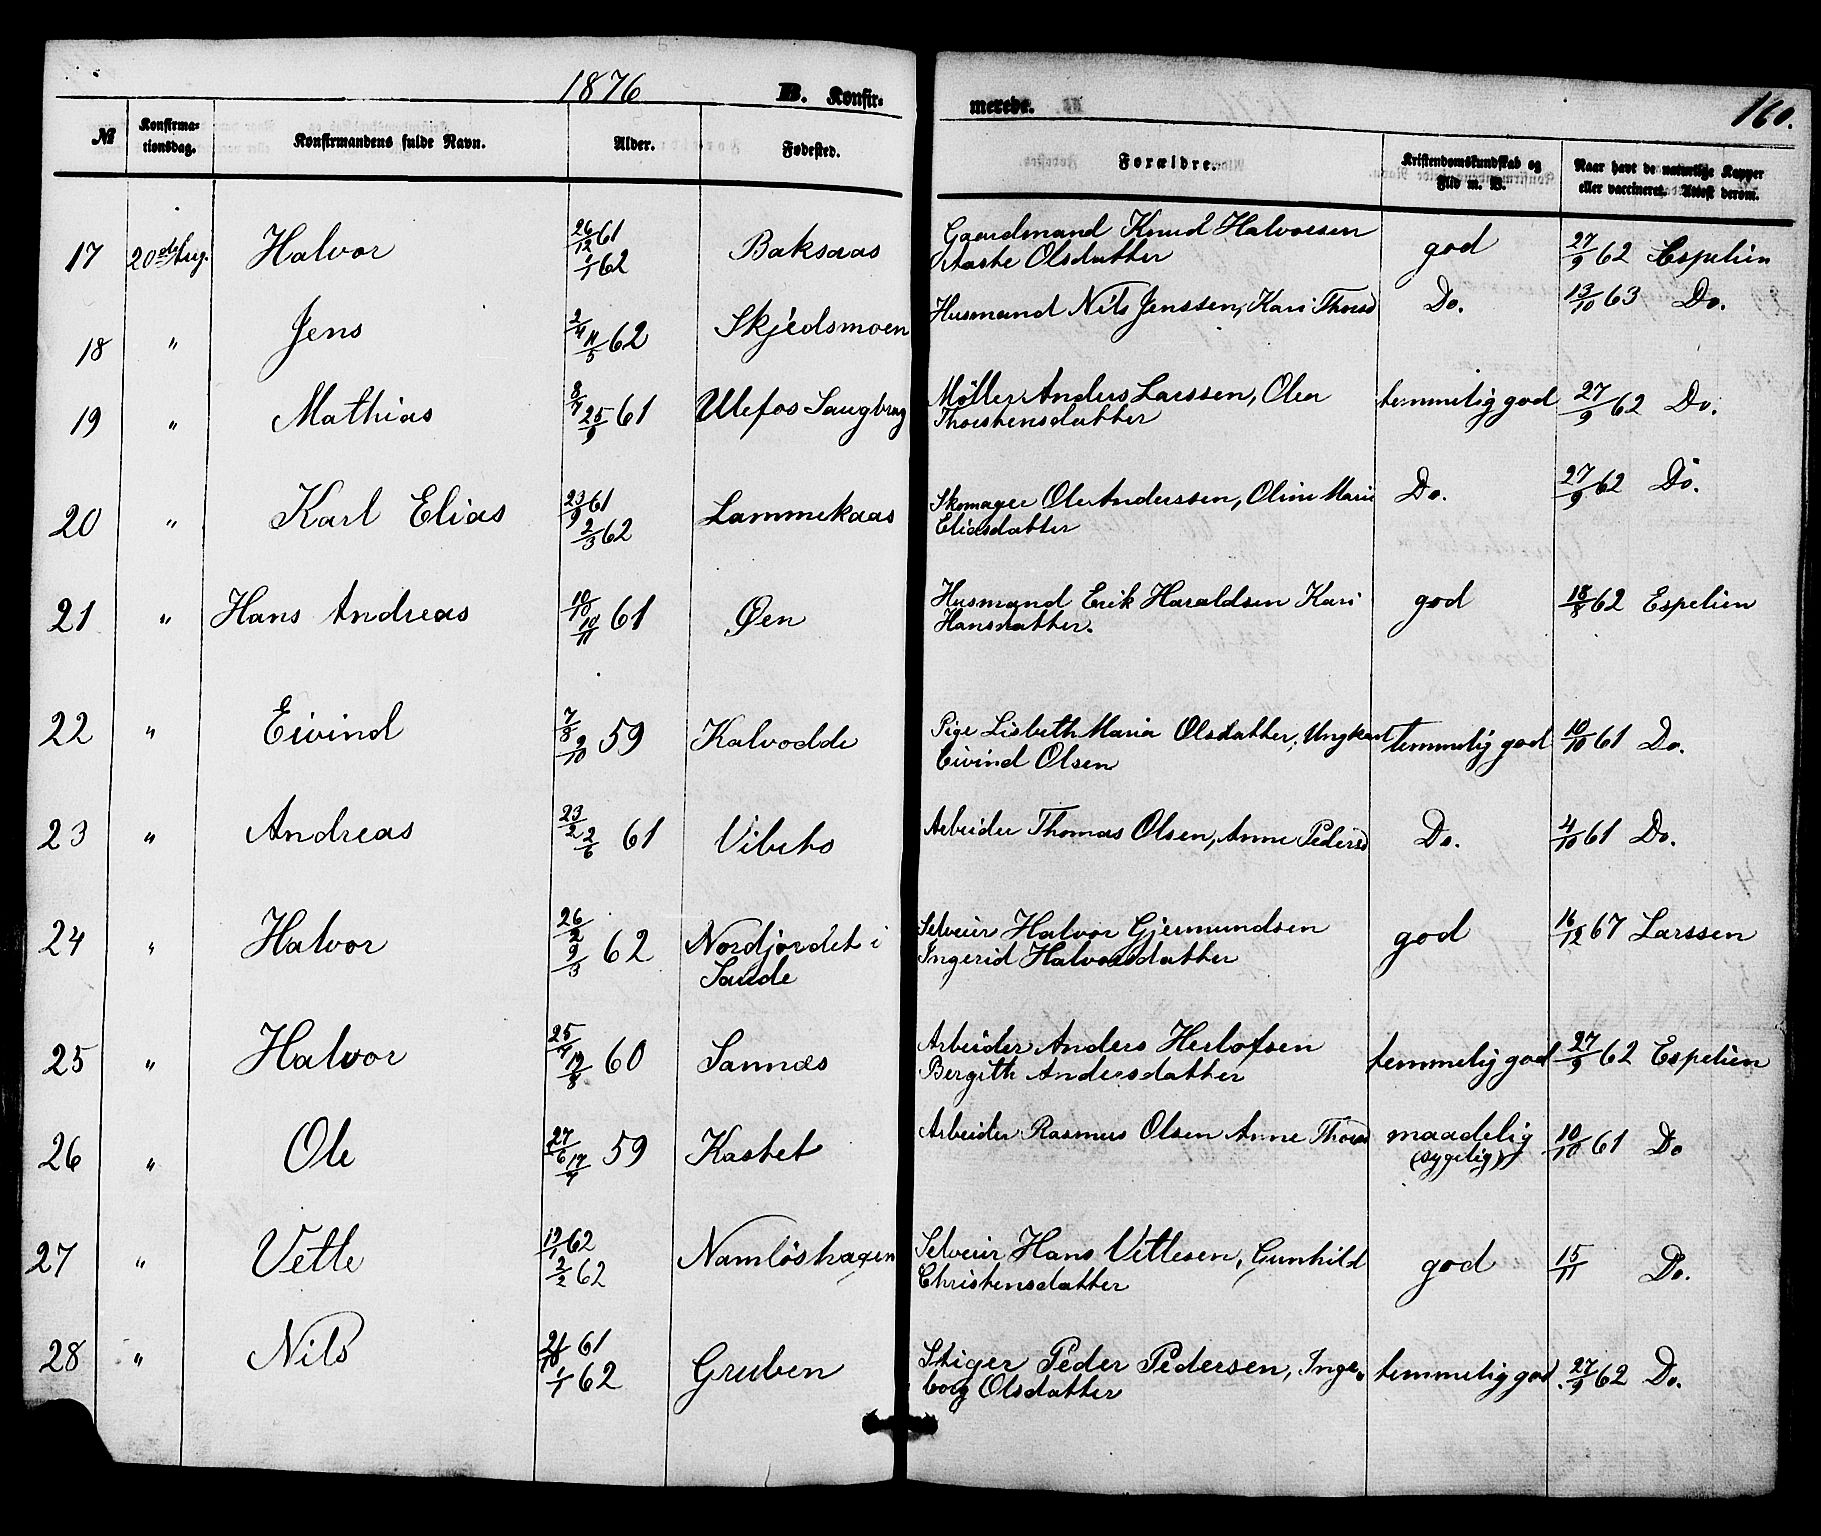 1876 B. Konfir= merede. 160.
№ Konfirma=tionsdag. Konfirmandens fulde Navn. Alder. Fødested. Forældre. Kristendomskundskab og Flid m. V. Naar havt de naturlige Kopper eller vaccineret. Attest derom.
17 20de Aug. Halvor 26/12 61 1/1 62 Baksaas Gaardmand Knud Halvorsen Aaste Olsdatter god 27/9 62 Espelien
18 " Jens 2/4 11/5 62 Skjedsmoen Husmand Nils Jenssen, Kari Thorsd Do. 13/10 63 Do.
19 " Mathias 8/7 25/9 61 Ulefos Saugbrug Møller Anders Larssen, Olea Thorstensdatter temmelig god 27/9 62 Do.
20 " Karl Elias 23/9 61 2/3 62 Lammekaas Skomager Ole Anderssen, Oline Marie Eliasdatter Do. 27/9 62 Do.
21 " Hans Andreas 10/10 10/11 61 Øen Husmand Erik Haraldsen Kari Hansdatter. god 18/8 62 Espelien
22 " Eivind 7/8 9/10 59 Kalvodde Pige Lisbeth Maria Olsdatter, Ungkarl Eivind Olsen temmelig god 10/10 61 Do.
23 " Andreas 23/2 2/6 61 Vibeto Arbeider Thomas Olsen, Anne Pedersd Do. 4/10 61 Do.
24 " Halvor 26/2 9/3 62 Nordjordet i Saude Selveier Halvor Gjermundsen Ingerid Halvorsdatter god 16/12 67 Larssen
25 " Halvor 25/4 12/8 60 Sannes Arbeider Anders Herlofsen Bergith Andersdatter temmelig god 27/9 62 Espelien
26 " Ole 27/6 17/7 59 Kastet Arbeider Rasmus Olsen Anne Thorsd maadelig (sygelig) 10/10 61 Do
27 " Vetle 19/1 62 2/2 62 Namløshagen Selveier Hans Vetlesen, Gunhild Christensdatter god 15/11 Do.
28 " Nils 21/10 61 1/1 62 Gruben Stiger Peder Pedersen, Inge=borg Olsdatter temmelig god 27/9 62 Do.